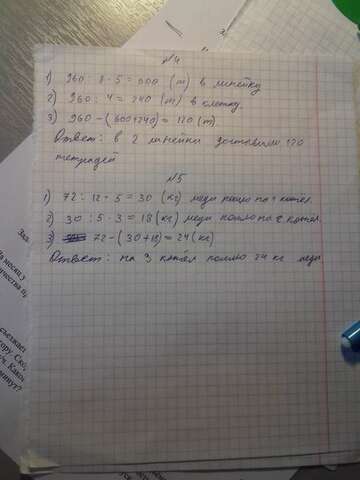 №4
1) 960 : 8 · 5 = 600 (т) в линейку
2) 960 : 4 = 240 (т) в клетку.
3) 960 - (600+240) = 120 (т).
Ответ: в 2 линейки доставили 120
тетрадей
№5
1) 72 : 12 · 5 = 30 (кг) меди пошло на 1 котел.
2) 30 : 5 · 3 = 18 (кг) меди пошло на 2 котел.
3) 72 - (30+18) = 24 (кг)
Ответ: на 3 котёл пошло 24 кг меди
Зад
На мосту
съезжает
гору. Ско
Како
минут?